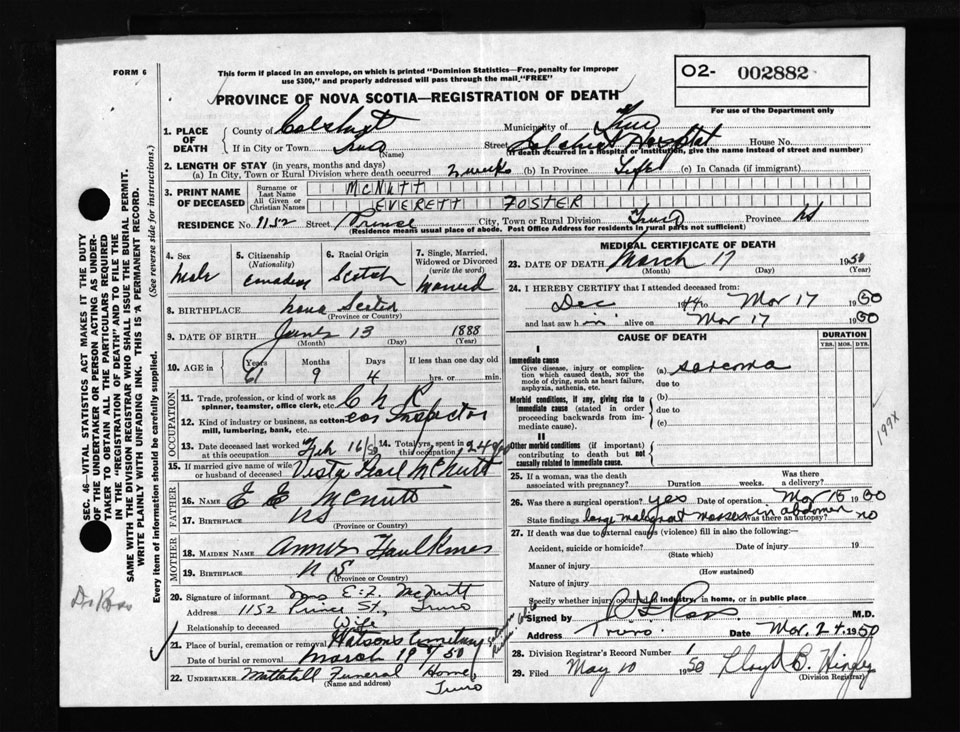 FORM 6
This form if placed in an envelope, on which is printed "Dominion Statistics—Free, penalty for improper
use $300," and properly addressed will pass through the mail "FREE"
O2- 002882
For use of the Department only
PROVINCE OF NOVA SCOTIA—REGISTRATION OF DEATH
1. PLACE OF DEATH
County of Municipality of Truro
If in City or Town Truro (Name) Street Hospital House No.
(If death occurred in a hospital or institution, give the name instead of street and number)
2. LENGTH OF STAY (in years, months and days)
(a) In City, Town or Rural Division where death occurred 2 weeks (b) In Province Life (c) In Canada (if immigrant)
3. PRINT NAME OF DECEASED
Surname or Last Name McNUTT
All Given or Christian Names EVERETT FOSTER
RESIDENCE No. 1152 Street Prince City, Town or Rural Division Truro Province NS
(Residence means usual place of abode. Post Office Address for residents in rural parts not sufficient)
4. Sex Male
5. Citizenship (Nationality) Canadian
6. Racial Origin Scotch
7. Single, Married, Widowed or Divorced (write the word) Married
8. BIRTHPLACE Nova Scotia
(Province or Country)
9. DATE OF BIRTH June 13 1888
(Month) (Day) (Year)
10. AGE in Years 61 Months 9 Days 4 If less than one day old hrs. or min.
OCCUPATION
11. Trade, profession, or kind of work as spinner, teamster, office clerk, etc. C N R
12. Kind of industry or business, as cotton-mill, lumbering, bank, etc. Car Inspector
13. Date deceased last worked at this occupation Feb 16/50
14. Total yrs. spent in this occupation 24
15. If married give name of wife or husband of deceased Vista McNutt
FATHER
16. NAME E E McNutt
17. BIRTHPLACE NS
(Province or Country)
MOTHER
18. MAIDEN NAME Faulkner
19. BIRTHPLACE N S
(Province or Country)
20. Signature of informant Mrs E. F. McNutt
Address 1152 Prince St., Truro
Relationship to deceased Wife
21. Place of burial, cremation or removal Watson's Cemetery
Date of burial or removal March 19 1950
22. UNDERTAKER Mattatall Funeral Home, Truro
(Name and address)
MEDICAL CERTIFICATE OF DEATH
23. DATE OF DEATH March 17 1950
(Month) (Day) (Year)
24. I HEREBY CERTIFY that I attended deceased from:
Dec 1944 to Mar 17 1950
and last saw h im alive on Mar 17 1950
CAUSE OF DEATH
DURATION
YRS. MOS. DYS.
I
Immediate cause
Give disease, injury or complication which caused death, NOT the mode of dying, such as heart failure, asphyxia, asthenia, etc.
(a) sarcoma
due to
Morbid conditions, if any, giving rise to immediate cause (stated in order proceeding backwards from immediate cause).
(b)
due to
(c)
II
Other morbid conditions (if important) contributing to death but not causally related to immediate cause.
199X
25. If a woman, was the death associated with pregnancy? Duration weeks. Was there a delivery?
26. Was there a surgical operation? yes Date of operation Mar 15 1950
State findings large malignant masses in abdomen Was there an autopsy? no
27. If death was due to external causes (violence) fill in also the following:—
Accident, suicide or homicide? Date of injury 19
(State which)
Manner of injury
(How sustained)
Nature of injury
Specify whether injury occurred in industry, in home, or in public place
Signed by Ross M.D.
Address Truro. Date Mar. 24. 1950
28. Division Registrar's Record Number
29. Filed May 10 1950 Lloyd
(Division Registrar)
SEC. 46—VITAL STATISTICS ACT MAKES IT THE DUTY
OF THE UNDERTAKER OR PERSON ACTING AS UNDERTAKER TO OBTAIN ALL THE PARTICULARS REQUIRED
IN THE "REGISTRATION OF DEATH" AND TO FILE THE
SAME WITH THE DIVISION REGISTRAR WHO SHALL ISSUE THE BURIAL PERMIT.
WRITE PLAINLY WITH UNFADING INK. THIS IS A PERMANENT RECORD.
Every item of information should be carefully supplied. (See reverse side for instructions.)
Dr Ross